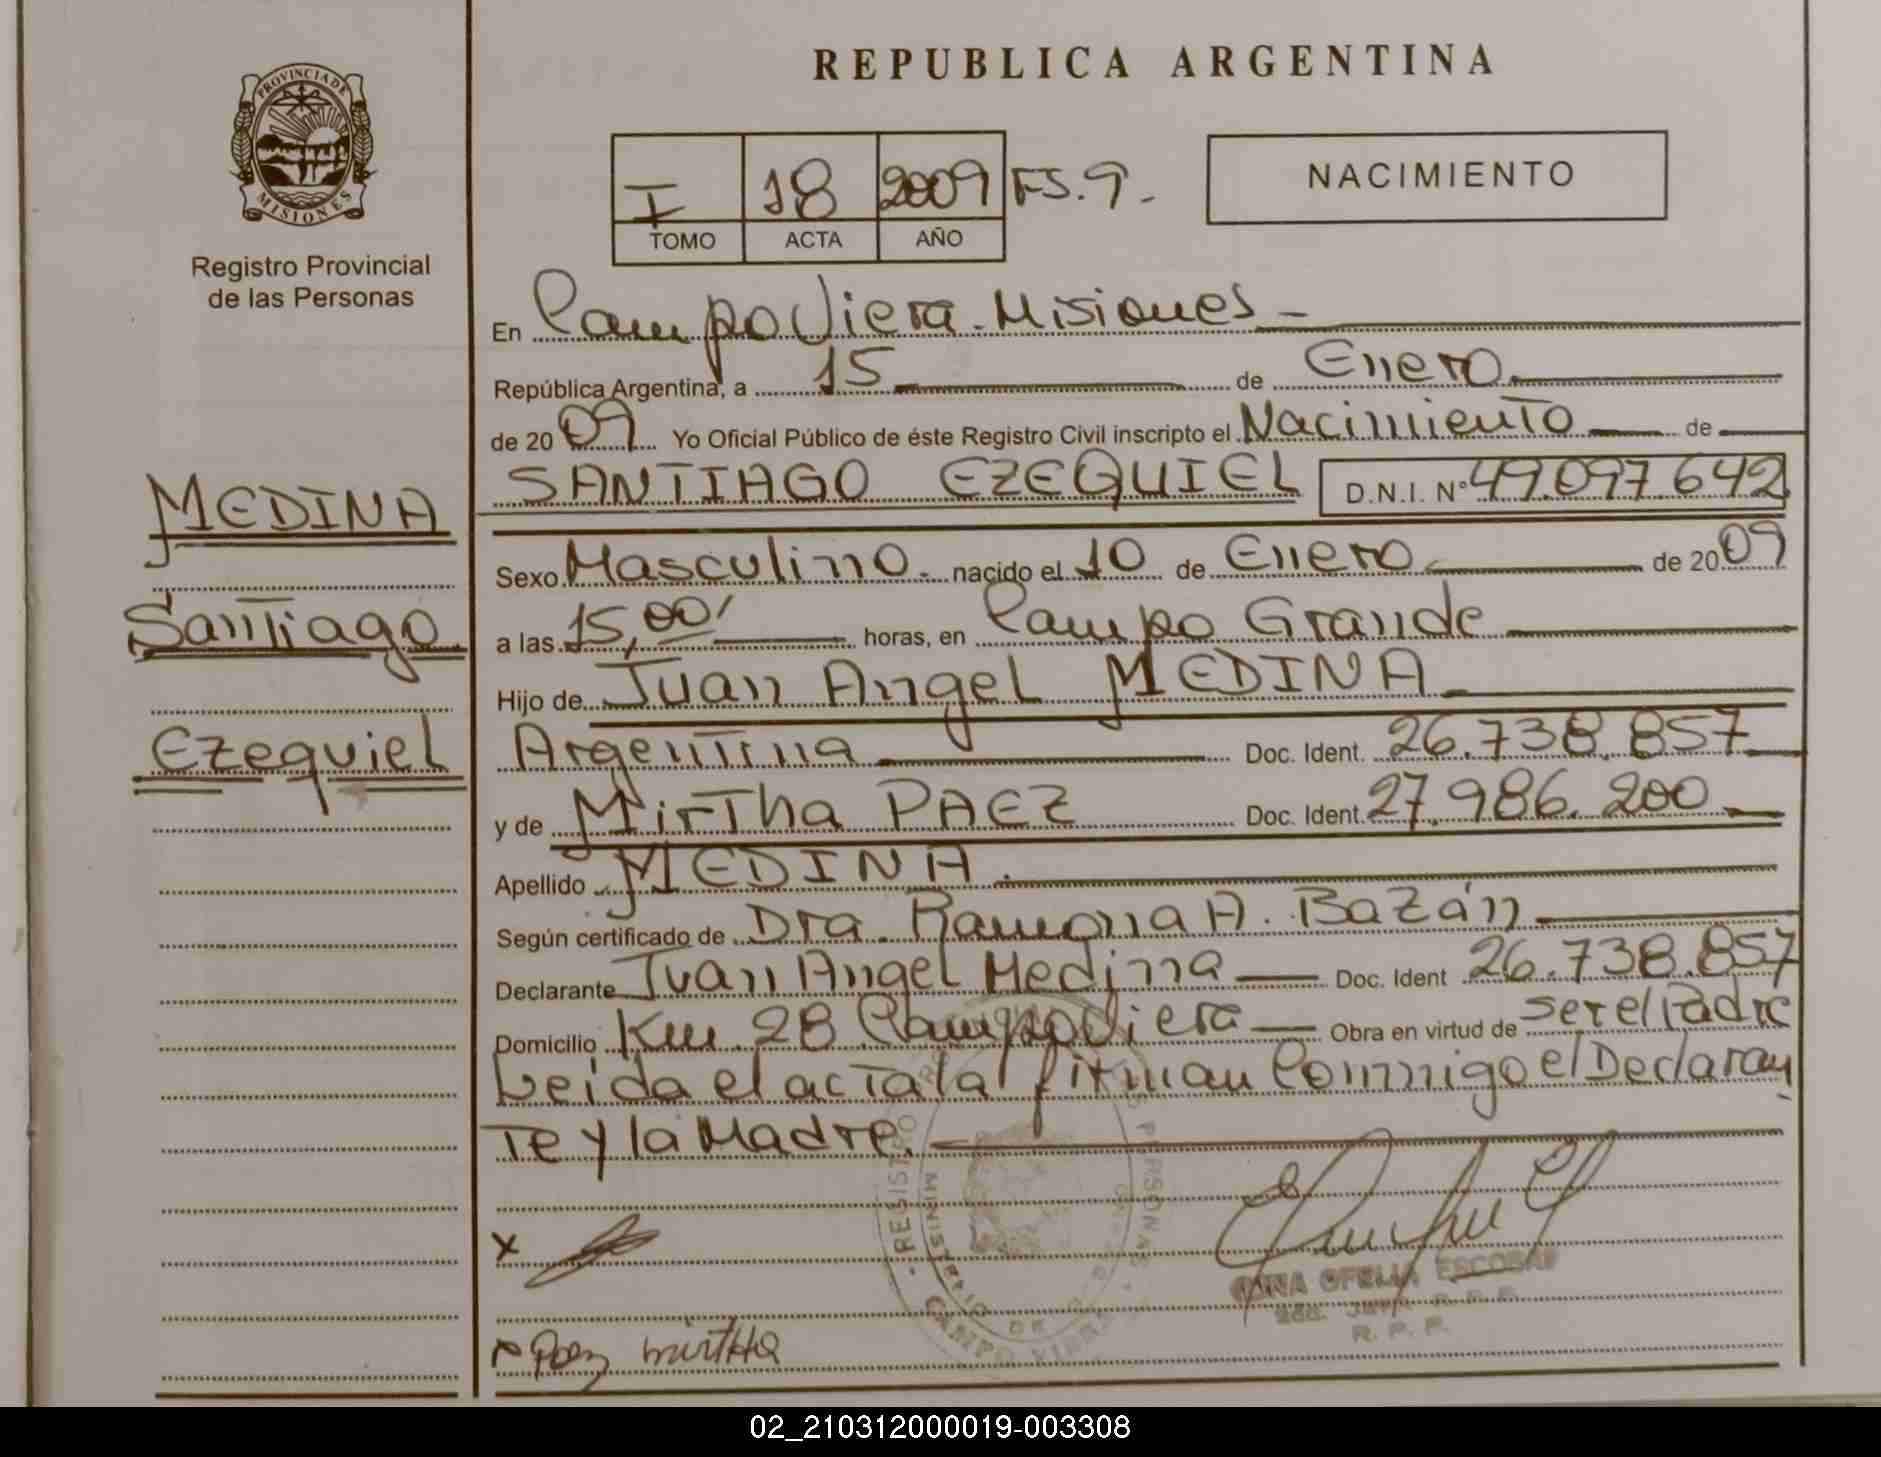 REPUBLICA ARGENTINA
PROVINCIA DE
MISIONES
Registro Provincial
de las Personas
I 18 2009 FS. 9.-
TOMO ACTA AÑO
NACIMIENTO
En Campo Viera - Misiones -
República Argentina, a 15 de Enero
de 2009 Yo Oficial Público de éste Registro Civil inscripto el Nacimiento de
SANTIAGO EZEQUIEL D.N.I. Nº 49.097.642
MEDINA
Santiago
Ezequiel
Sexo Masculino. nacido el 10 de Enero de 2009
a las 15,00' horas, en Campo Grande
Hijo de Juan Angel MEDINA
Argentina Doc. Ident. 26.738.857
y de Mirtha PAEZ Doc. Ident. 27.986.200
Apellido MEDINA.
Según certificado de Dra. Ramona A. Bazán
Declarante Juan Angel Medina Doc. Ident 26.738.857
Domicilio Km. 28 Campo Viera Obra en virtud de ser el Padre
Leida el acta la firman Conmigo el Declaran
te y la Madre.
REGISTRO PERSONAS
MINISTERIO DE
CAMPO VIERA
x
OFELIA ESCOBAR
R. P. P.
x Paez mirtHa
02_210312000019-003308